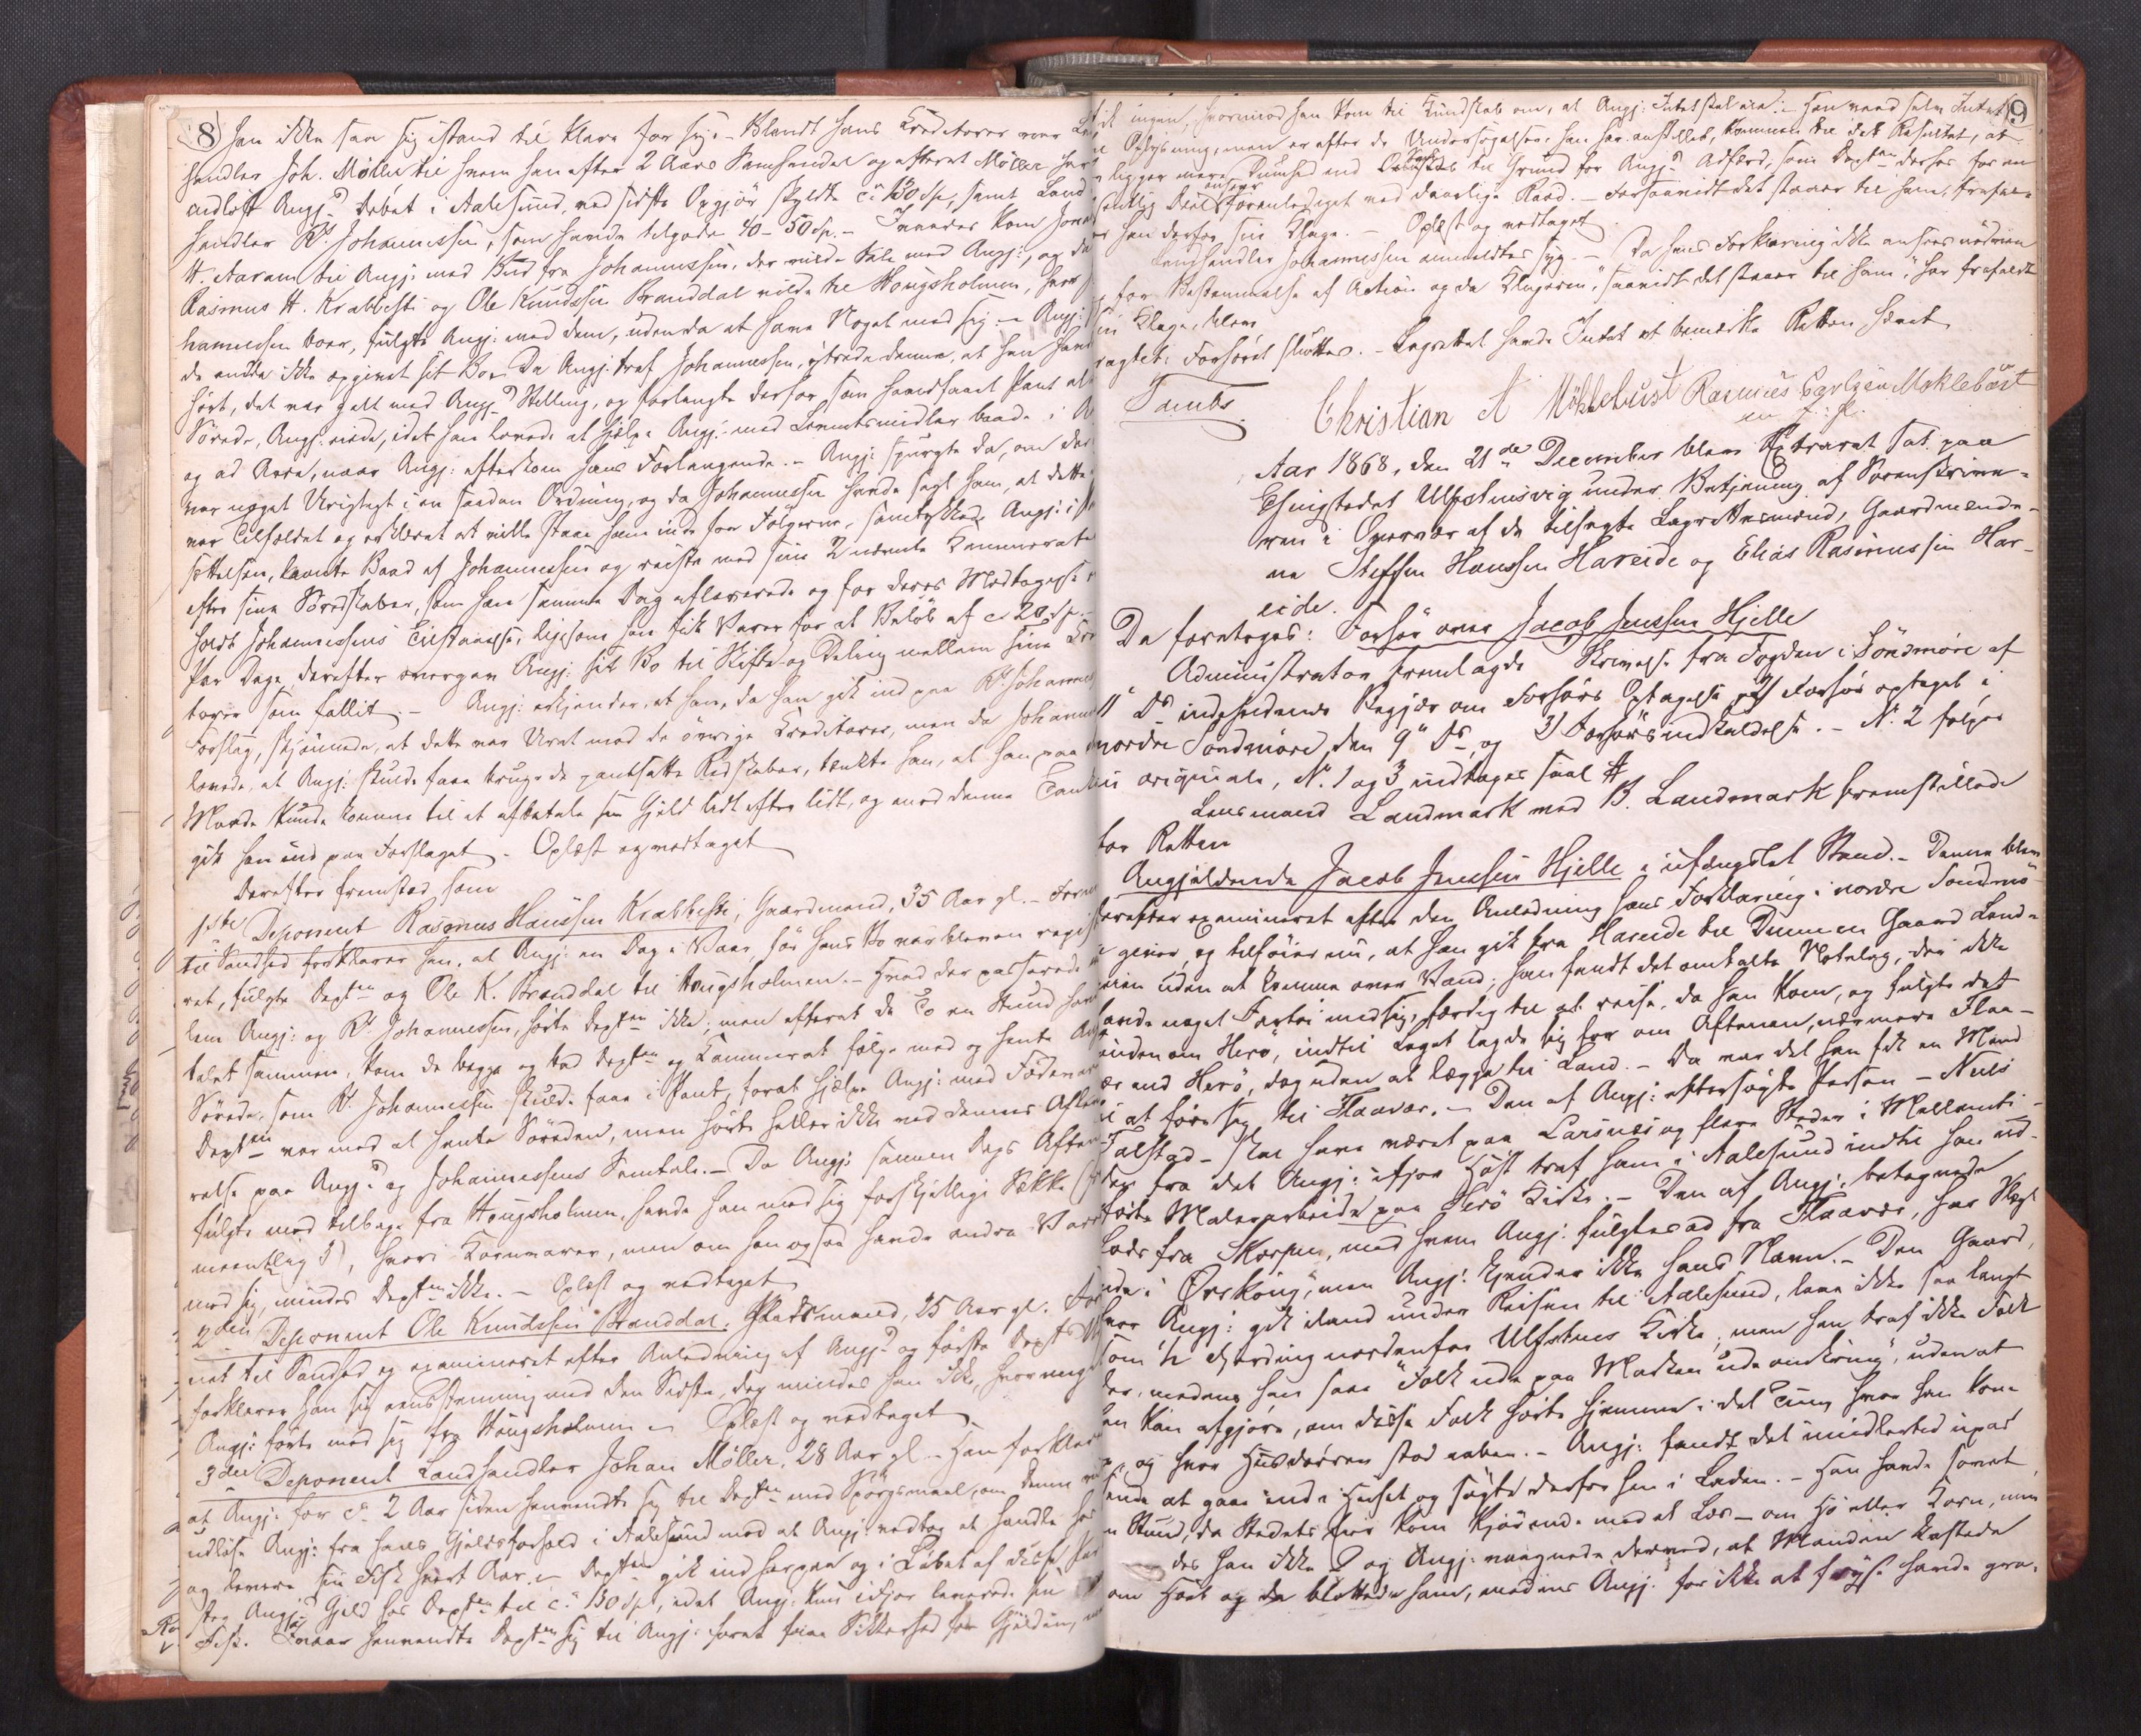 8
han ikke saa sig istand til klare for sig. - Blandt hans Creditorer var
handler Joh. Møller til hvem han efter 2 Aars Samhandel og efterat Møller
indløst Angj.s Debet i Aalesund, ved sidste Opgjør skyldte ca 130 Sp, samt Land
handler Rs. Johannessen, som havde tilgode 40 - 50 Sp. - Saa kom
H. Aaram til Angj: med Bud fra Johannessen, der vilde tale med Angj:, og da
Rasmus H. Krabbesti og Ole Knudsen Branddal vilde til Hougsholmen, hvor
hannessen boer, fulgte Angj: med dem, uden da at have Noget med sig. - Angj:
da endda ikke opgivet sit Bo. Da Angj: traf Johannessen, ytrede denne, at han
hørt, det var galt med Angj.s Stilling, og forlangte derfor som Pant al
Sørede, Angj: eiede, idet han lovede at hjelpe Angj: med Levnetsmidler baade i
og ad Aare, naar Angj: efterkom hans Forlangende. - Angj: spurgte da, om der
var noget Urigtigt i en saadan Ordning, og da Johannessen havde sagt ham, at dette
var Tilfældet og erklæret at ville staae ham inde for Følgerne, samtykkede Angj: i
sættelsen, laante Baad af Johannessen og reiste med sine 2 nævnte Kammerater
efter sine Søredskaber, som han samme Dag afleverede og for deres Modtagelse
holdt Johannessens Tilstaaelse, ligesom han fik Varer for et Beløb af ca 20 Sp. -
Par Dage derefter overgav Angj: sit Bo til Skifte og Deling mellem sine
torer som fallit. - Angj: erkjender, at han, da han gik ind paa Rs. Johannes
Forslag, skjønnede, at dette var Uret mod de øvrige Creditorer, men da Johannes
lovede, at Angj: skulde faae bruge de pantsatte Redskaber, tænkte han, at han paa
Maade kunde komme til at afbetale sin Gjeld lidt efter lidt, og med denne Tanke
gik han ind paa Forslaget. - Oplæst og vedtaget
Derefter fremstod som
1ste Deponent Rasmus Hanssen Krabbesti, Gaardmand, 35 Aar gl. -
til Sandhed forklarer han, at Angj: en Dag i Vaar, før hans Bo var bleven regist
ret, fulgte Depten og Ole K. Branddal til Hougsholmen. - Hvad der passerede
lem Angj: og Rs. Johannessen, hørte Depten ikke; men efterat de To en Stund
talet sammen, kom de begge og bad Depten og Kammerat følge med og hente
Sørede, som Rs. Johannessen skulde faae i Pant, forat hjelpe Angj: med Fødevarer
Depten var med at hente Søreden, men hørte heller ikke ved dennes Afleve
relse paa Angj.s og Johannessens Samtale. - Da Angj: samme Dags Aften
fulgte med tilbage fra Hougsholmen, havde han med sig forskjellige Sække
hvori Kornvarer, men om han ogsaa havde andre Varer
med sig, mindes Depten ikke. - Oplæst og vedtaget
2den Deponent Ole Knudsen Branddal, Pladsmand, 25 Aar gl.
net til Sandhed og examineret efter Anledning af Angj.s og første Depts
forklarer han sig eensstemmig med den Sidste, dog mindes han ikke, hvor meget
Angj: førte med sig fra Hougsholmen. - Oplæst og vedtaget
3die Deponent Landhandler Johan Møller, 28 Aar gl. - Han forklarer
at Angj: for ca 2 Aar siden henvendte sig til Depten med Spørgsmaal, om denne
udløse Angj: fra hans Gjeldsforhold i Aalesund mod at Angj: vedtog at handle hos
og levere sin Fisk hvert Aar. - Depten gik ind herpaa og i Løbet af disse
steg Angj.s Gjeld hos Depten til ca 130 Sp, idet Angj: kun ifjor leverede sin
Fisk. I Foraar henvendte Depten sig til Angj: forat faae Sikkerhed for Gjelden,
9
ingen, hvormed han kom til Kundskab om, at Angj: Intet skal eie. - Han veed selv Intet
Oplysning, men er efter de Undersøgelser han har anstillet, kommen til det Resultat, at
ligger mere Dumhed end til Grund for Angj.s Adfærd, som Depten derfor for en
Deel anseer foranlediget ved daarlige Raad. - Forsaavidt det staaer til ham, frafal-
han derfor sin Klage. - Oplæst og vedtaget
Landhandler Johannessen anmeldtes syg. - Da hans Forklaring ikke ansees nødven
for Bestemmelse af Action og da Klageren, "saavidt det staaer til ham", har frafaldt
sin Klage, blev
ragtet Forhøret sluttet. - Lagrettet havde Intet at bemærke Retten hævet
Christian A Möklebust Rasmus Carlsen Moklebust
m. f. P.
Aar 1868, den 21de December blev Extraret sat paa
Thingstedet Ulfsteensvig under Betjening af Sorenskrive-
ren i Overvær af de tilsagte Lagrettesmænd, Gaardmænde-
ne Steffen Hanssen Hareide og Elias Rasmussen Har-
eide.
Da foretoges: Forhør over Jacob Jensen Hjelle
Administrator fremlagde Skrivelse fra Fogden i Söndmöre af
11te ds. indeholdende Begjær om Forhørs Optagelse 2) Forhør optaget i
nordre Søndmøre den 9de ds. og 3) Forhørsindkaldelse. - No. 2 følger
in originale, No. 1 og 3 indtages saal.
Lensmand Landmark med B. Landmark fremstillede
for Retten
Angjældende Jacob Jensen Hjelle i ufængslet Stand. - Denne blev
derefter examineret efter den Anledning hans Forklaring i nordre Søndmø-
re giver, og tilføier nu, at han gik fra Hareide til Dimmen Gaard Land-
veien uden at komme over Vand; han fandt det omtalte Notelag, der ikke
havde noget Fartøi med sig, færdig til at reise, da han kom, og fulgte det
udenom Herø, indtil Laget lagde sig for om Aftenen, nærmere Flaa-
vær end Herø, dog uden at lægge til Land. - Da var det han fik en Mand
til at føre sig til Flaavær. - Den af Angj: eftersøgte Person - Niels
Falstad - skal have været paa Larsnes og flere Steder i Mellemti-
den fra det Angj: ifjor Høst traf ham i Aalesund indtil han ud-
førte Malerarbeide paa Herö Kirke. - Den af Angj: betegnede
Lods fra Skorpen, med hvem Angj: fulgtes ad fra Flaavær, har Slægt
inde i Ørskoug, men Angj: kjender ikke hans Navn. - Den Gaard,
hvor Angj: gik iland under Reisen til Aalesund, laae ikke saa langt
som 1/2 Fjerding nordenfor Ulfsteens Kirke; men han traf ikke Folk
der, medens han saae "Folk ude paa Marken ude omkring", uden at
han kan afgjøre, om disse Folk hørte hjemme i det Tun, hvor han kom
op, og hvor Husdørren stod aaben. - Angj: fandt det imidlertid upas
sende at gaae ind i Huset og søgte derfor hen i Laden. - Han havde sovet
en Stund, da Stedets Eier kom kjørende med et Læs - om Hø eller Korn,
des han ikke - og Angj: vaagnede derved, at Manden kastede
om Høet og da blottede ham, medens Angj: for ikke at fryse havde gra-